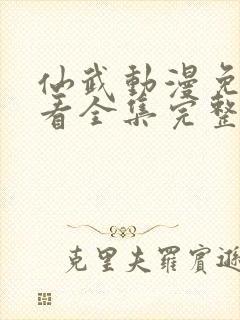 仙武動漫免
看全集完整
克里夫羅賓遜